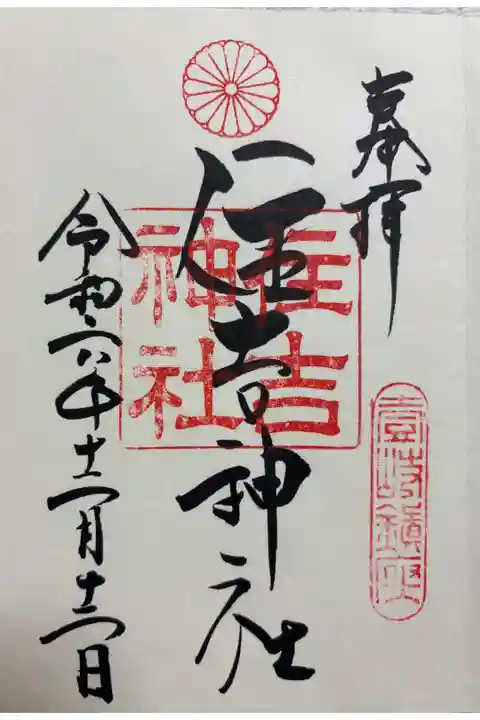 奉拝
壱岐鎮座
住吉神社
住吉神社
令和六年十二月十二日